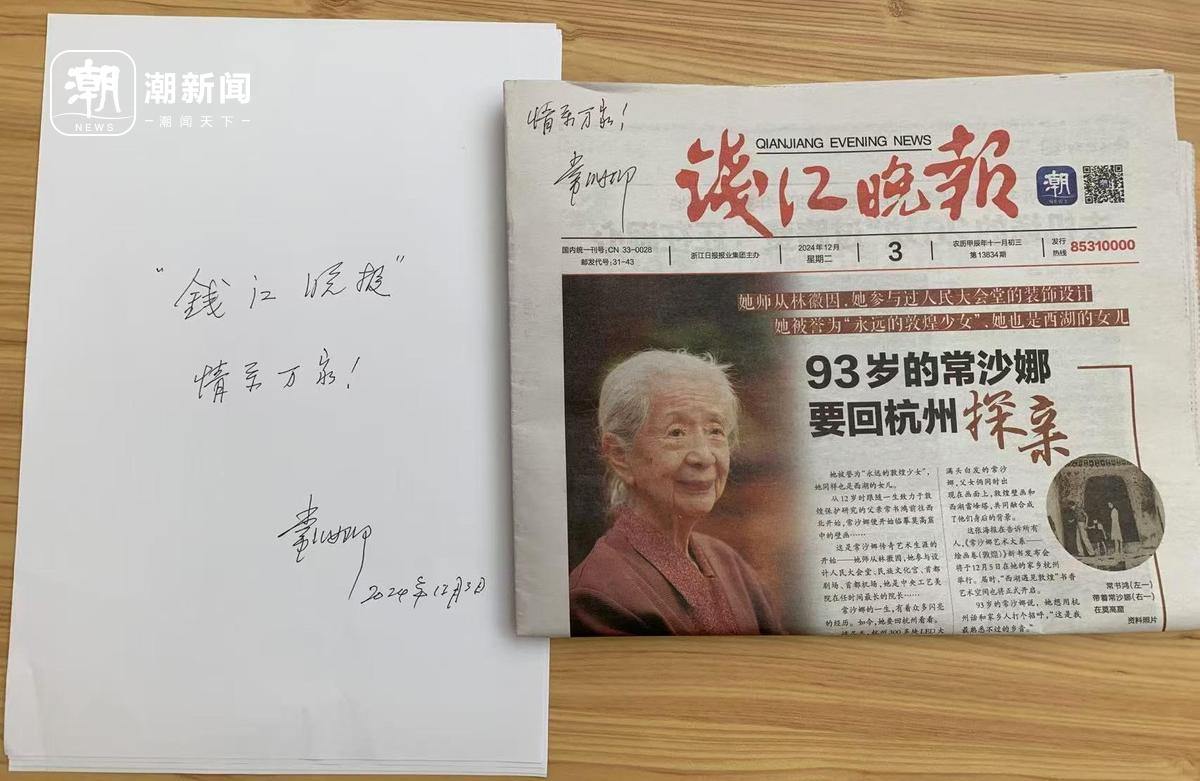 潮
NEWS
潮新闻
潮闻天下
“錢江晚报”
情系万家!
常沙娜
2024年12月3日
情系万家!
常沙娜
QIANJIANG EVENING NEWS
钱江晚報
潮
NEWS
国内统一刊号:CN 33-0028
邮发代号:31-43
浙江日报报业集团主办
2024年12月
星期二
3
农历甲辰年十一月初三
第13834期
发行
热线
85310000
她师从林徽因,她参与过人民大会堂的装饰设计
她被誉为“永远的敦煌少女”,她也是西湖的女儿
93岁的常沙娜
要回杭州探亲
她被誉为“永远的敦煌少女”,
她同样也是西湖的女儿。
从12岁时跟随一生致力于敦
煌保护研究的父亲常书鸿前往西
北开始,常沙娜便开始临摹莫高窟
中的壁画……
这是常沙娜传奇艺术生涯的
开始——她师从林徽因,她参与设
计人民大会堂、民族文化宫、首都
剧场、首都机场,她是中央工艺美
院在任时间最长的院长……
常沙娜的一生,有着众多闪亮
的经历。如今,她要回杭州看看。
满头白发的常沙
娜,父女俩同时出
现在画面上,敦煌壁画和
西湖雷峰塔,共同融合成
了他们身后的背景。
这张海报在告诉所有
人,《常沙娜艺术大系——
绘画卷(敦煌)》新书发布会
将于12月5日在她的家乡杭州
举行。届时,“西湖遇见敦煌”书香
艺术空间也将正式开启。
93岁的常沙娜说,她想用杭
州话和家乡人打个招呼,“这是我
最熟悉不过的乡音。”
常书鸿(左一)
带着常沙娜(右一)
在莫高窟
资料照片